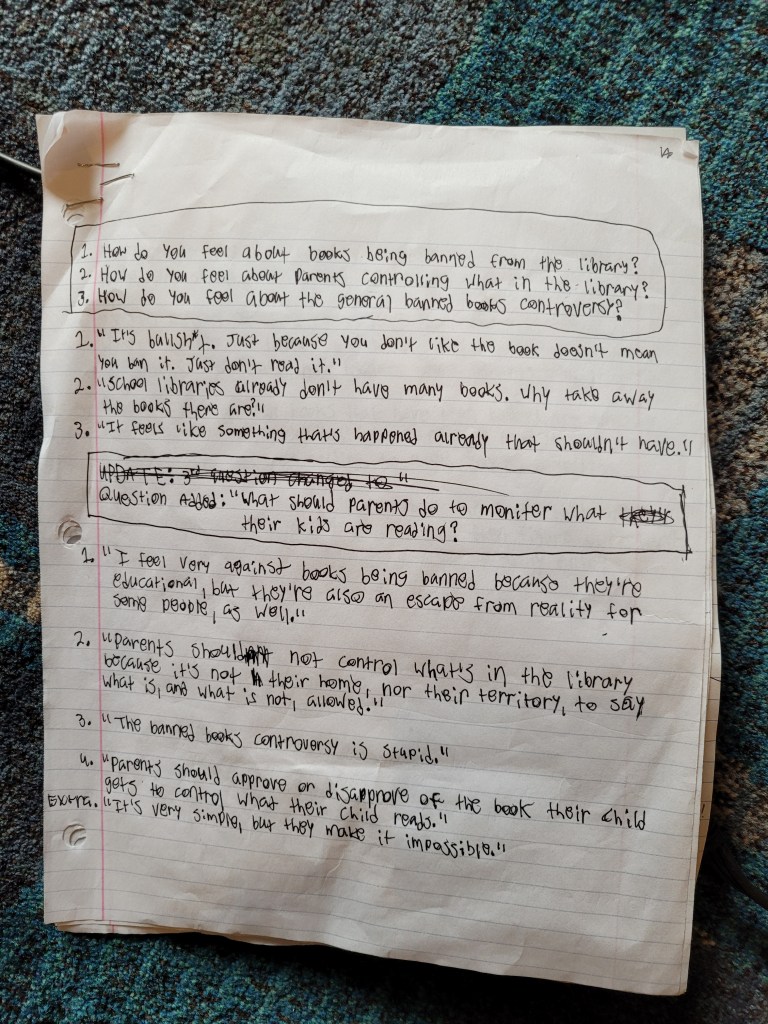 1. How do you feel about books being banned from the library?
2. How do you feel about parents controlling what in the library?
3. How do you feel about the general banned books controversy?
1. "It's bullsh*t. Just because you don't like the book doesn't mean
you ban it. Just don't read it."
2. "School libraries already don't have many books. Why take away
the books there are?"
3. "It feels like something that's happened already that shouldn't have."
UPDATE: 3rd question changed to "
Question Added: "What should parents do to moniter what
their kids are reading?
1. "I feel very against books being banned because they're
educational, but they're also an escape from reality for
some people, as well."
2. "Parents should not control what's in the library
because it's not in their home, nor their territory, to say
what is, and what is not, allowed."
3. "The banned books controversy is stupid."
4. "Parents should approve or disapprove of the book their child
gets to control what their child reads."
Extra. "It's very simple, but they make it impossible."